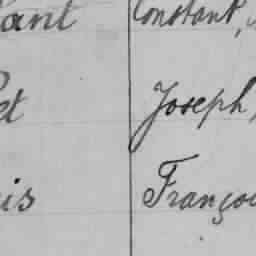 ant Constant,
et Joseph,
is Françoi